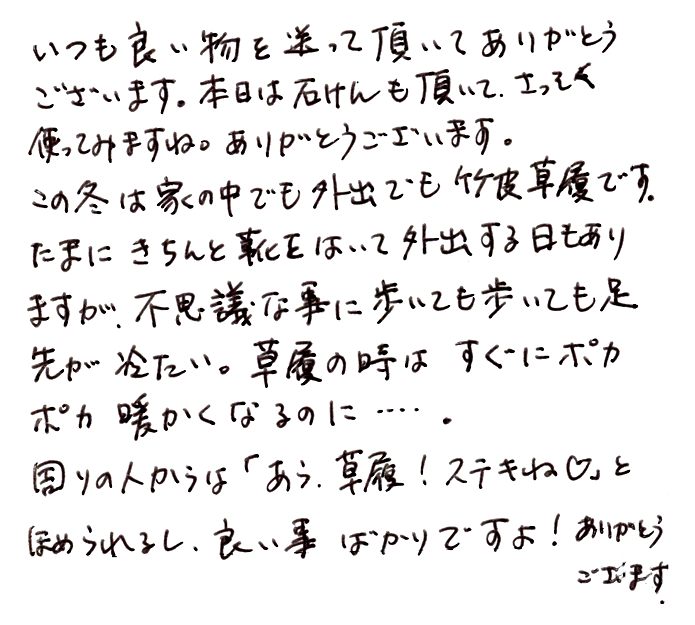 いつも良い物を送って頂いてありがとう
ございます。本日は石けんも頂いて、さっそく
使ってみますね。ありがとうございます。
この冬は家の中でも外出でも竹皮草履です。
たまにきちんと靴をはいて外出する日もあり
ますが、不思議な事に歩いても歩いても足
先が冷たい。草履の時はすぐにポカ
ポカ暖かくなるのに‥‥。
周りの人からは「あら、草履！ステキね♡」と
ほめられるし、良い事ばかりですよ！ありがとう
ございます。